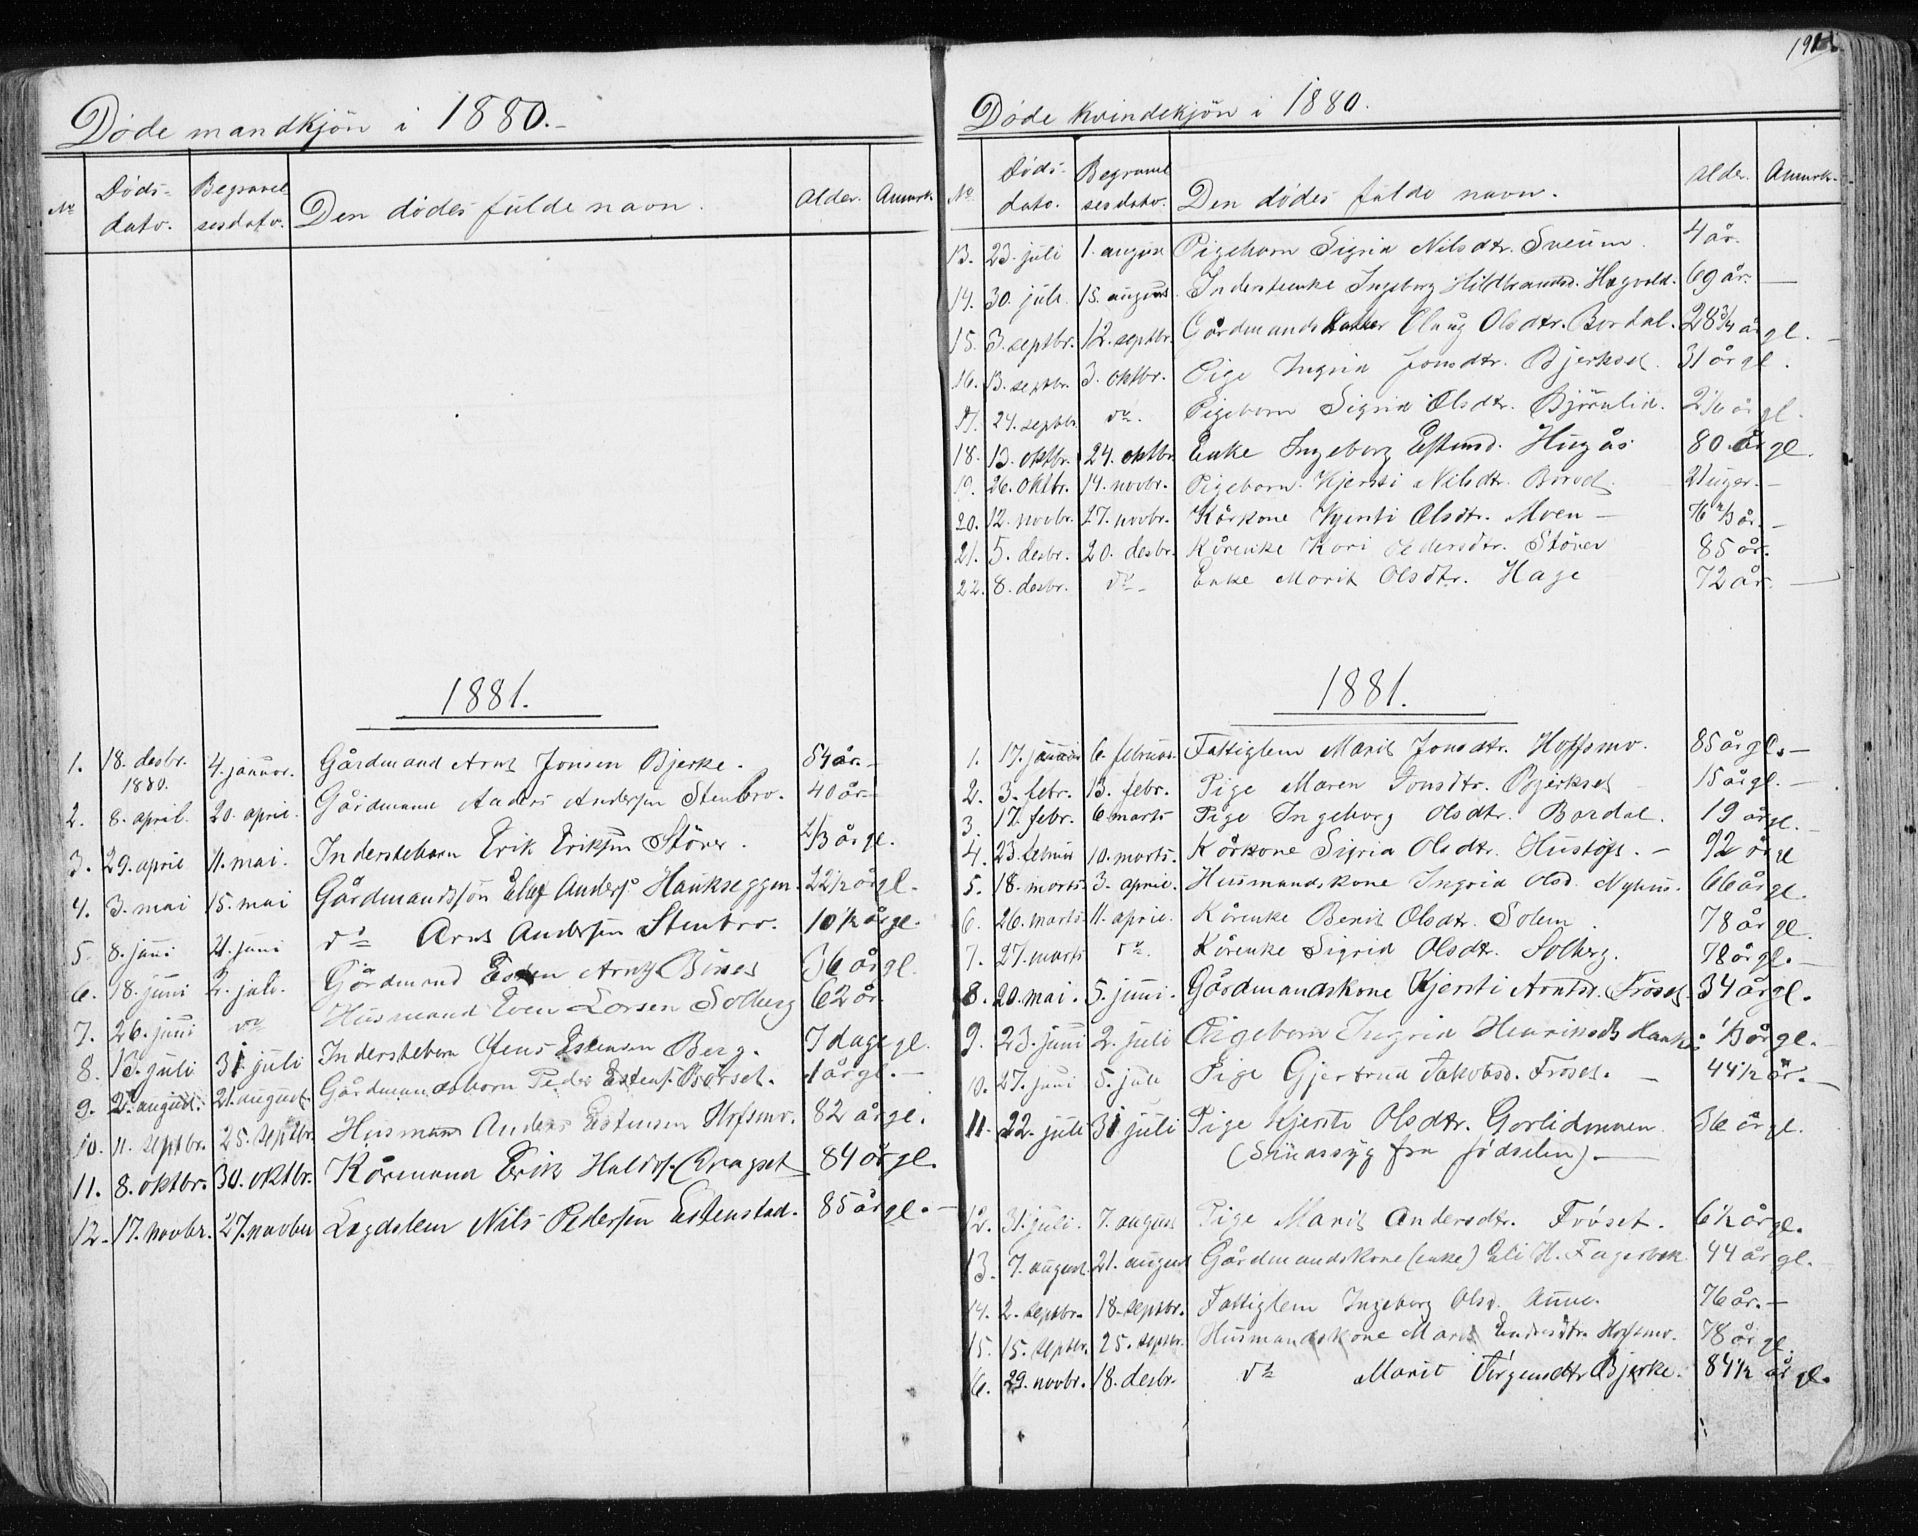 Døde mandkjøn i 1880.-
No Døds- dato. Begravel sesdato. Den dødes fulde navn. Alder. Anmerk.
1881.
1. 18. desbr. 1880. 4. januar. Gårdmand Arnt Jonsen Bjerke. 54 år.-
2. 8. april. 20. april. Gårdmand Anders Andersen Stenbro. 40 år.-
3. 29. april 11. mai. Inderstebarn Erik Eriksen Störer. 2/3 år gl.
4. 3. mai 15. mai Gårdmandssön Elef Anders. Haukseggen. 22½ år gl.
5. 8. juni 21. juni do Arnt Andersen Stenbro. 10½ år gl.
6. 18. juni 2. juli. Gårdmand Esten Arntz. 36 år gl.
7. 26. juni do Husmand Even Larsen Solberg 62 år
8. 13. juli 31 juli Inderstebarn Jens Estensen Berg. 7 dage gl.
9. august. 21. august. Gårdmandsbarn Peder Estens. 1 år gl.-
10. 11. septbr. 25. septbr. Husmand Anders Estensen Hofsmo. 82 år gl.
11. 8. oktbr. 30. oktbr. Kårmand Erik Haldos. Kragset 84 år gl.
12. 17. novbr. 27. novber Lægdslem Nils Pedersen Estenstad. 85 år gl.-
191
Døde kvindekjön i 1880.
No Døds- dato. Begravel sesdato. Den dødes fulde navn. alder. Anmerk.
13. 23. juli 1. august Pigebarn Sigrid Nilsdtr. Sneum. 4 år.
14. 30. juli. 15. august Inderstenke Ingeborg Hildbrandsd. Hagvold. 69 år. -
15. 3. septbr. 12. septbr. Gårdmandsdatter Olaug Olsdtr. Bordal. 28¾ år gl. -
16. 13. septbr. 3. oktbr. Pige Ingrid Jonsdtr. Bjerkset. 31 år gl.
17. 24. septbr. do. Pigebarn Sigrid Olsdtr. Björnlid. 2 år gl.
18. 13. oktbr. 24. oktbr. Enke Ingeborg Estensd. Hugås 80. år gl.
19. 26. oktbr. 14. novbr. Pigebarn Kjersti Nilsdtr. 2 uger.-
20. 12. novbr. 27. novbr. Kårkone Kjersti Olsdtr. Moen - 76 år.-
21. 5. desbr. 20. desbr. Kårenke Kari Pedersdtr. Störer 85 år.
22. 8. desbr. do- Enke Marit Olsdtr. Hage 72 år. -
1881.
1. 17. januar 6. februar Fattiglem Marit Jonsdtr. Hoffsmo. 85 år gl.-
2. 3. febr. 13. febr. Pige Maren Jonsdtr. Bjerkset 15 år gl. -
3. 17. febr. 6 marts Pige Ingeborg Olsdtr. Bordal. 19 år gl. -
4. 23. februar 10. marts. Kårkone Sigrid Olsdtr. Hustöft. - 92 år gl
5. 18. marts 3. april. Husmandskone Ingrid Olsd. Nyhus. 66 år gl.
6. 26. marts 11. april. Kårenke Berit Olsdtr. Solem 78 år gl.
7. 27. marts do. Kårenke Sigrid Olsdtr. Solberg. 78 år gl.-
8. 20. mai. 5. juni. Gårdmandskone Kjersti Arntsd. Fröset. 34 år gl.
9. 23. juni 2. juli Pigebarn Ingrid Henriksdt. ⅓ år gl.-
10. 27. juni 5. juli Pige Gjertrud Jakobsd. Fröset. - 44½ år.-
11. 22. juli 31 juli Pige Kjersti Olsdtr. 36 år gl.
(Sindssyg fra födselen) -
12. 31. juli. 7. august Pige Marit Andersdtr. Fröset. 6½ år gl.
13. 7. august. 21. august Gårdmandskone (enke) Eli H. Fagerbek 44 år gl.
14. 2. septbr. 18. septbr. Fattiglem Ingeborg Olsd. Aune. 76 år.-
15. 15. septbr. 25. septbr. Husmandskone Marit Endresdtr. Hofsmo. 78 år gl.
6. 29. novbr. 18. desbr. do Marit Jörgensdtr Bjerke. 84½ år gl.